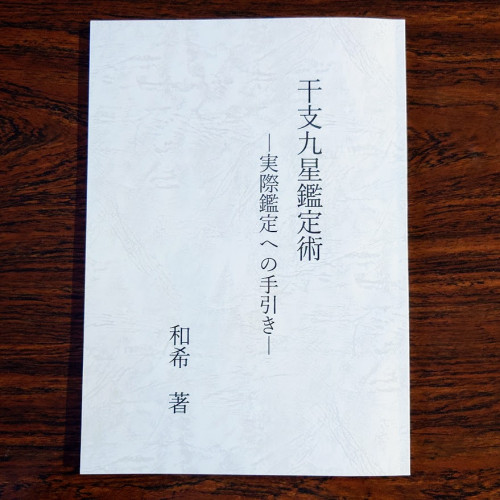 干支九星鑑定術
―実際鑑定への手引き―
和希 著